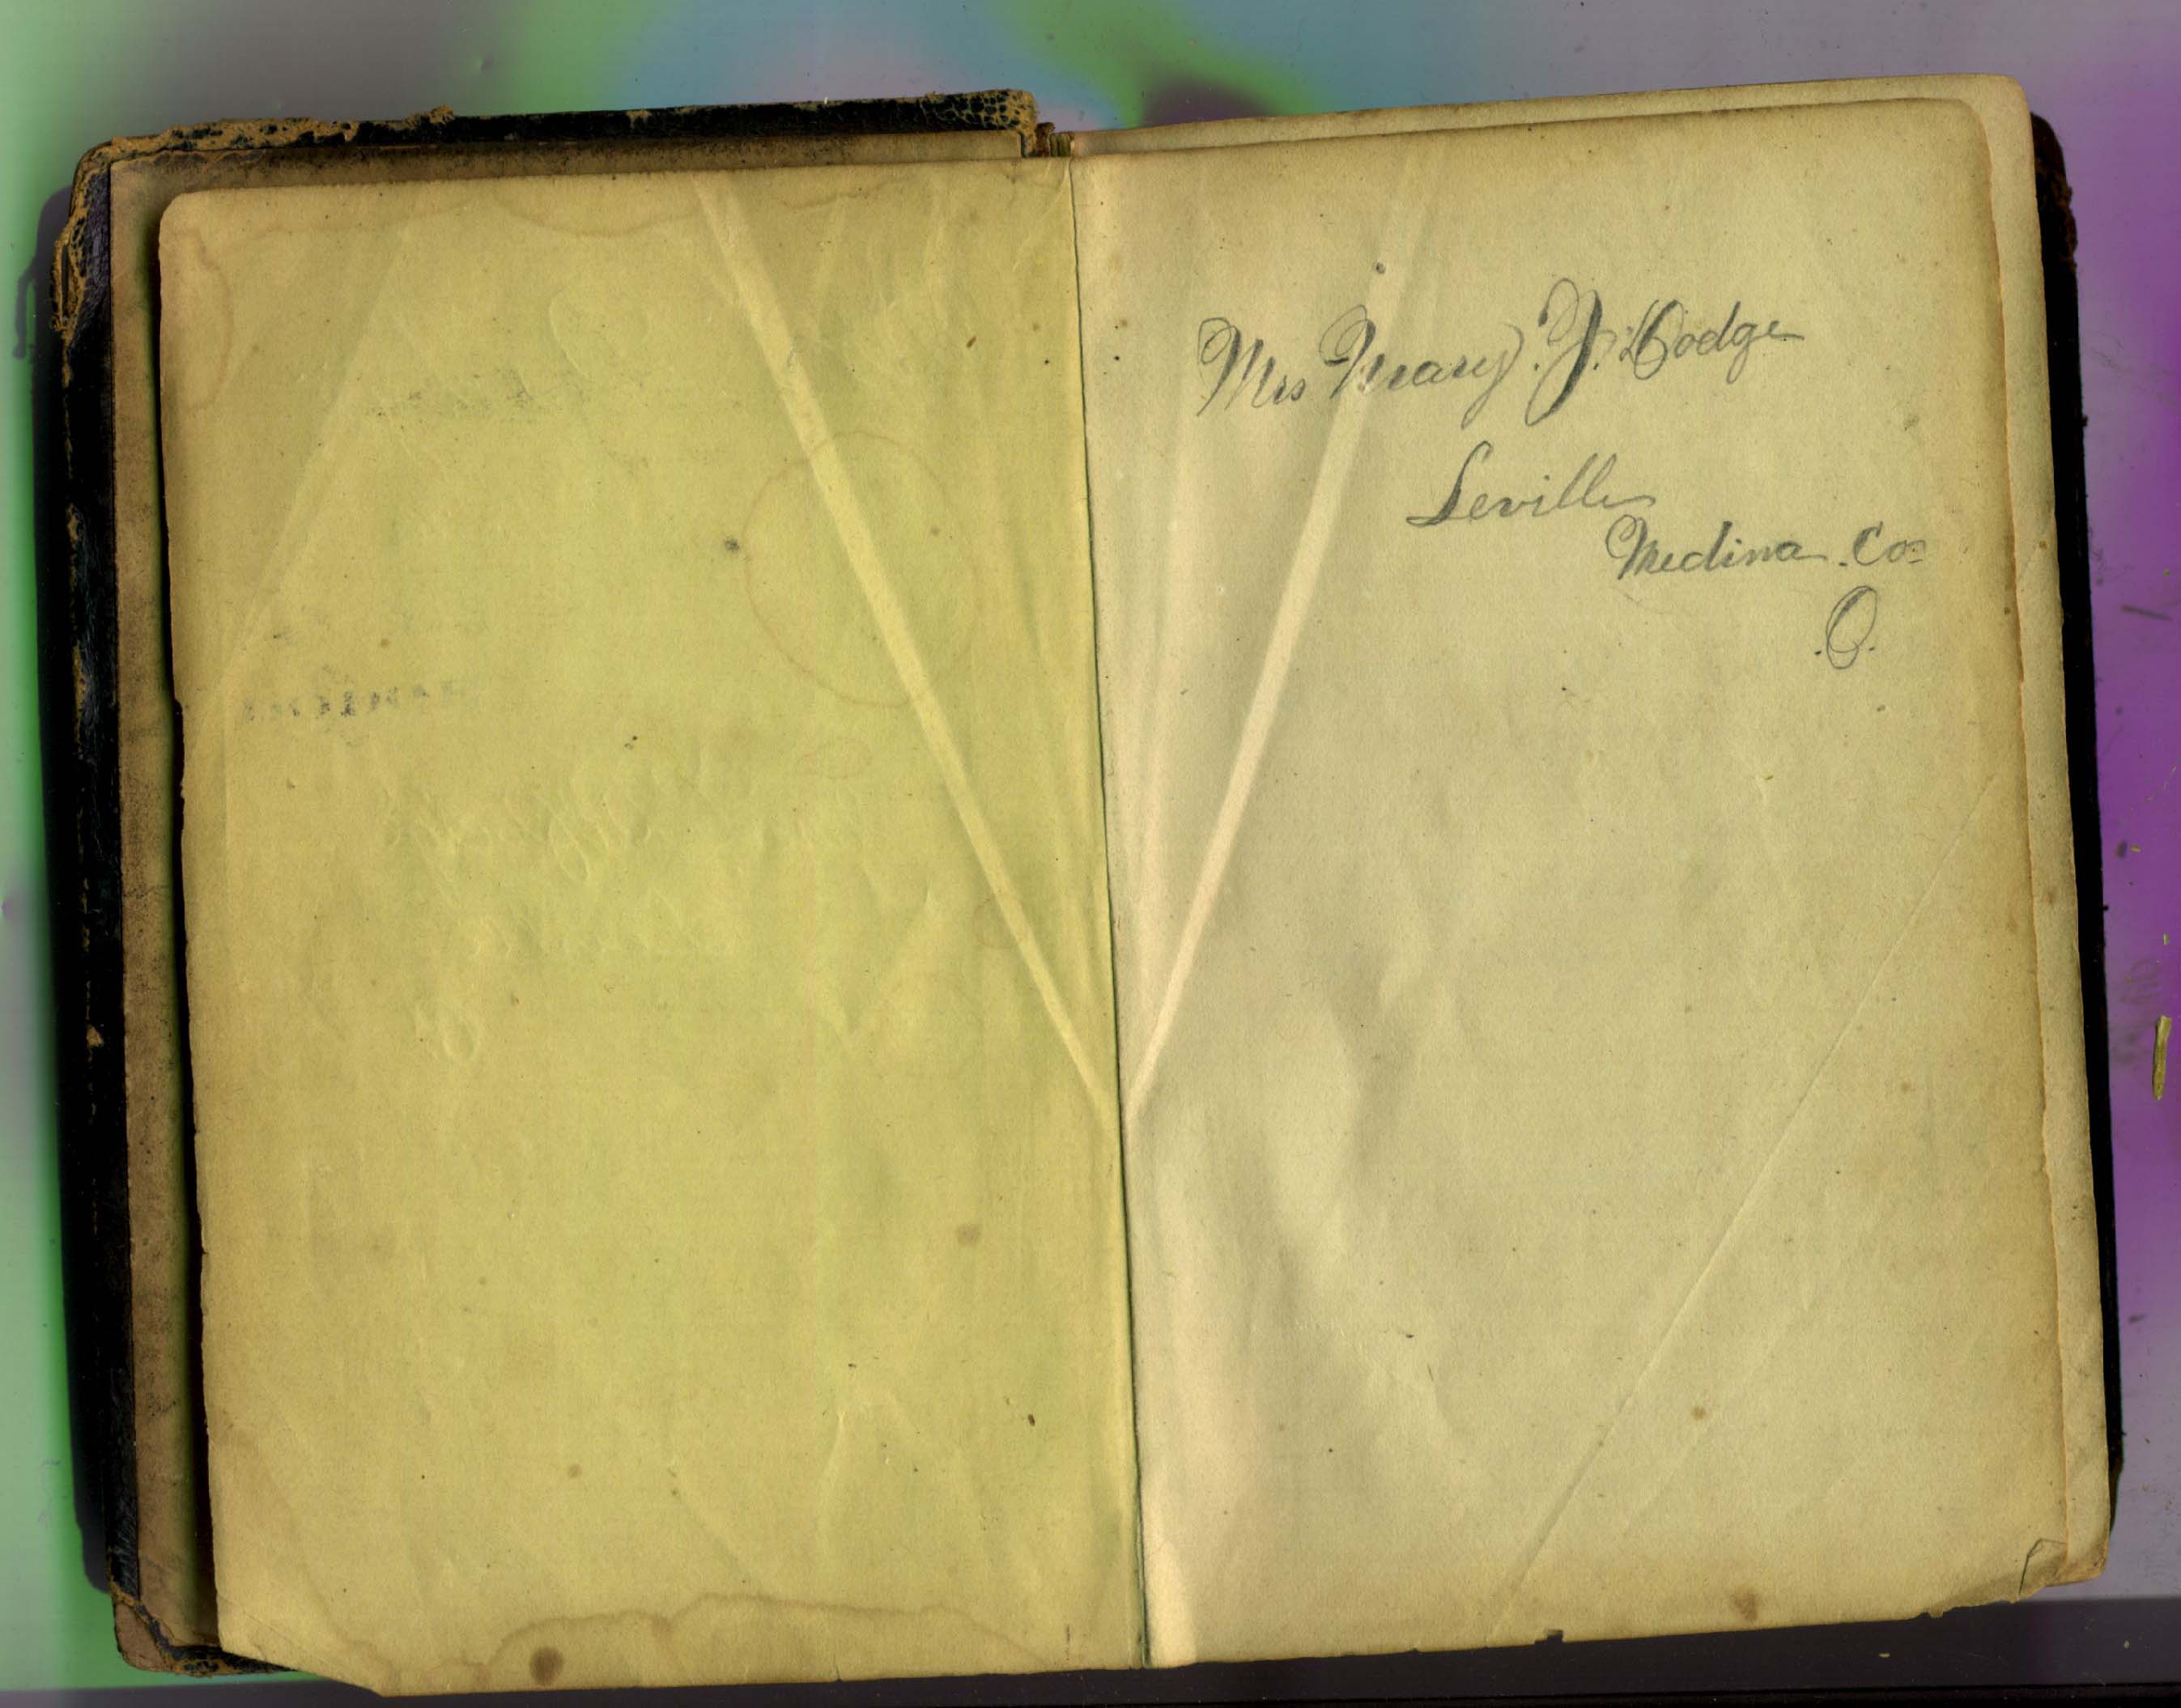 Mrs Mary. J. Hodge
Seville
Medina. Co.
.O.